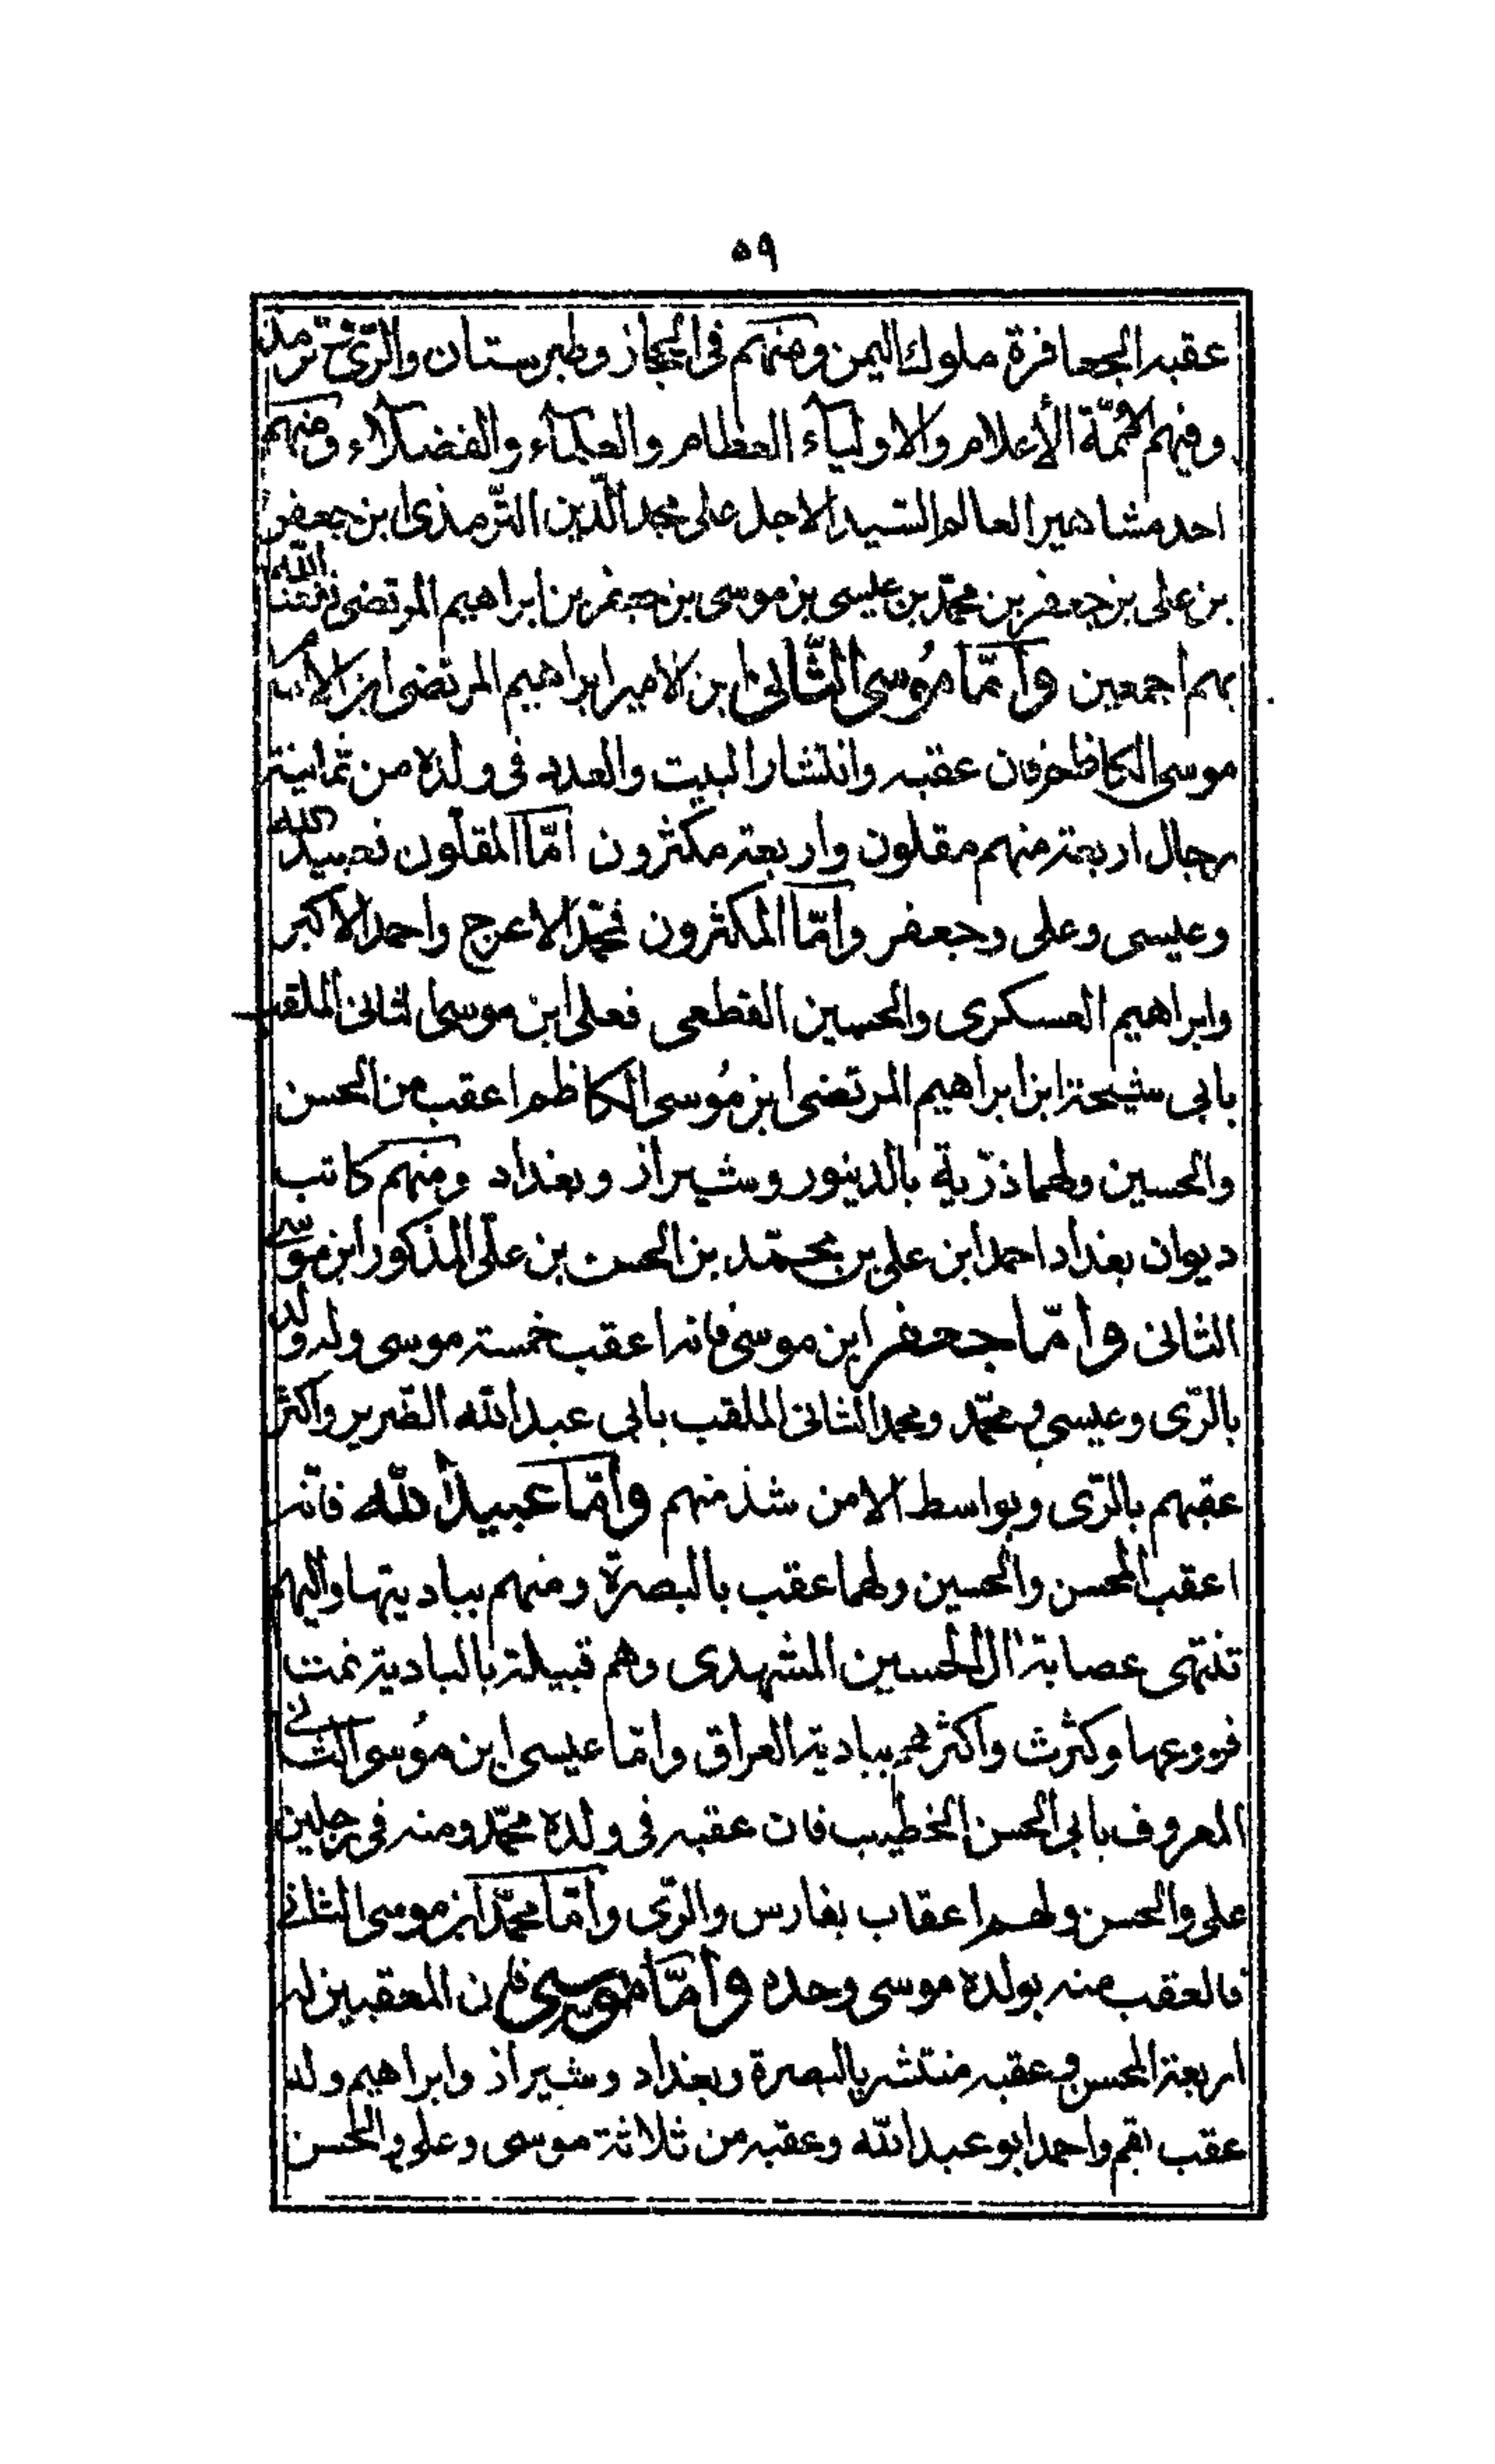 ٥٩
عقبه الجعافرة ملوك اليمن ومنهم في الحجاز وطبرستان والرى ترمذ
وفيهم الائمّة الأعلام والاولياء العظام والعلماء والفضلاء ومنهم
احد مشاهير العالم السّيد الاجل على مجد الدّين التّرمذى ابن جعفر
بن على بن جعفر بن محمّد بن عيسى بن موسى بن جعفر بن ابراهيم المرتضى نفعنا الله
بهم اجمعين وأمّا مُوسى الثّانى ابن الامير ابراهيم المرتضى ابن الامام
موسى الكاظم فان عقبه وانتشار البيت والعدد فى ولده من ثمانية
رجال اربعة منهم مقلون واربعة مكثرون امّا المقلّون فعبيد الله
وعيسى وعلى وجعفر وامّا المكثرون فمحمّد الاعرج واحمد الاكبر
وابراهيم العسكرى والحسين القطعى فعلى ابن موسى الثانى الملقب
بابى شيحة ابن ابراهيم المرتضى ابن مُوسى الكاظم اعقب من الحسن
والحسين ولهما ذرّية بالدينور وشيراز وبغداد ومنهم كاتب
ديوان بغداد احمد ابن على بن محمّد بن الحسن بن على المذكور ابن موسى
الثانى وامّا جعفر ابن موسى فانه اعقب خمسة موسى وله ولد
بالرّى وعيسى ومحمّد ومحمد الثانى الملقب بابى عبد الله الضّرير واكثر
عقبهم بالرّى وبواسط الا من شذ منهم وامّا عبيد الله فانّه
اعقب المحسن والحسين ولهما عقب بالبصرة ومنهم بباديتها واليهم
تنتهى عصابة ال الحسين المشهدى وهم قبيلة بالبادية نمت
فروعها وكثرت واكثرهم ببادية العراق وامّا عيسى ابن مُوسى الثانى
المعروف بابى الحسن الخطيب فان عقبه فى ولده محمّد ومنه فى رجلين
على والحسن ولهم اعقاب بفارس والرّى وامّا محمّد ابن موسى الثانى
فالعقب منه بولده موسى وحده وامّا موسى فان المعقبين له
اربعة المحسن وعقبه منتشر بالبصرة وبغداد وشيراز وابراهيم وله
عقب بقم واحمد ابو عبد الله وعقبه من ثلاثة موسى وعلى والحسن